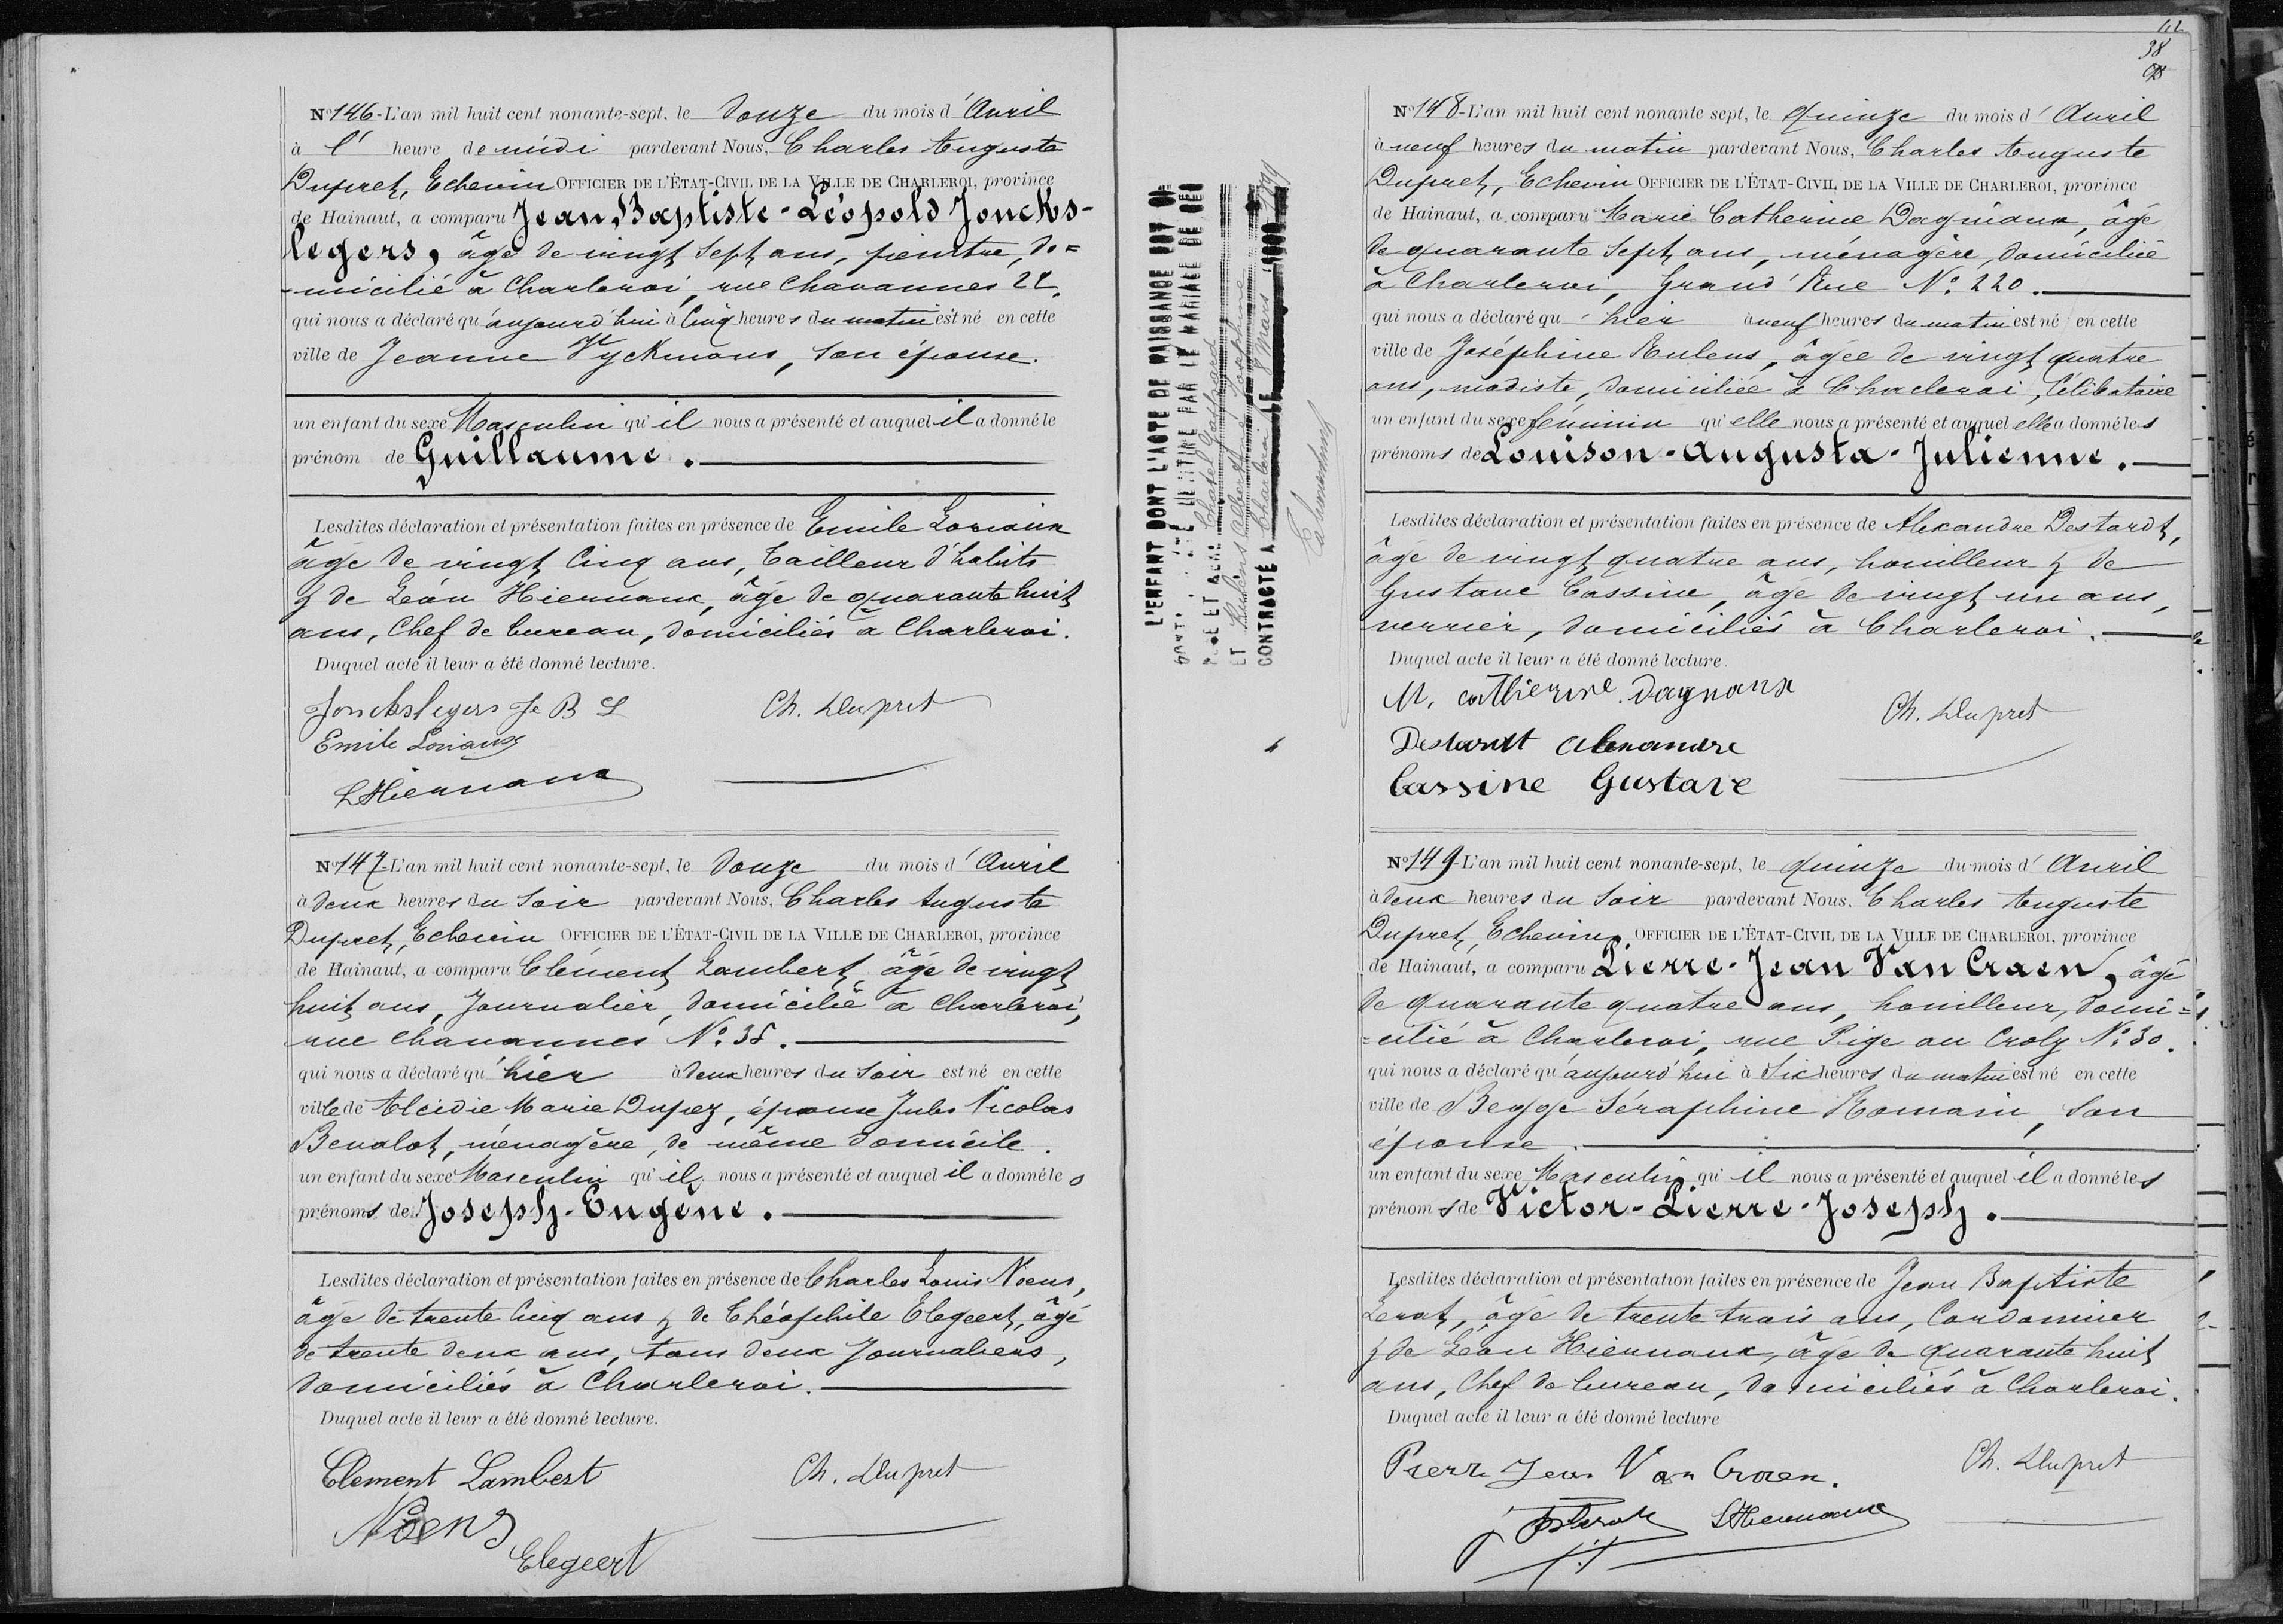 Nº 146 - L'an mil huit cent nonante-sept, le Douze du mois d'Avril
à l' heure de midi pardevant Nous, Charles Auguste
Dupret, Echevin OFFICIER DE L'ÉTAT-CIVIL DE LA VILLE DE CHARLEROI, province
de Hainaut, a comparu Jean Baptiste - Léopold Joncks-
legers, âgé de vingt sept ans, peintre, do=
-micilié à Charleroi, rue Chavannes 22,
qui nous a déclaré qu'aujourd'hui à Cinq heures du matin est né en cette
ville de Jeanne Wyckmans, son épouse.
un enfant du sexe Masculin qu'il nous a présenté et auquel il a donné le
prénom de Guillaume.
Lesdites déclaration et présentation faites en présence de Emile Loriaux
âgé de vingt Cinq ans, Tailleur d'habits
& de Léon Hiernaux, âgé de quarante huit
ans, Chef de bureau, domiciliés à Charleroi.
Duquel acte il leur a été donné lecture.
Jonckslegers J B L Ch. Dupret
Emile Loriaux
LHiernaux
Nº 147 - L'an mil huit cent nonante-sept, le Douze du mois d'Avril
à deux heures du Soir pardevant Nous, Charles Auguste
Dupret, Echevin OFFICIER DE L'ÉTAT-CIVIL DE LA VILLE DE CHARLEROI, province
de Hainaut, a comparu Clément Lambert, âgé de vingt
huit ans, Journalier, domicilié à Charleroi,
rue Chavannes Nº 38.
qui nous a déclaré qu'hier à deux heures du Soir est né en cette
ville de Alcidie Marie Dupez, épouse Jules Nicolas
Benalot, ménagère, de même domicile.
un enfant du sexe Masculin qu'il nous a présenté et auquel il a donné les
prénoms de Joseph - Eugène.
Lesdites déclaration et présentation faites en présence de Charles Louis Noens,
âgé de trente Cinq ans & de Théophile Elegeert, âgé
de trente deux ans, tous deux Journaliers,
domiciliés à Charleroi.
Duquel acte il leur a été donné lecture.
Clement Lambert Ch. Dupret
Noens
Elegeert
L'ENFANT DONT L'ACTE DE NAISSANCE EST CI-
LE MARIAGE DE SES
PÈRE ET MÈRE
ET Rulens Albertine Josephine
CONTRACTÉ A Charleroi LE 8 Mars
38
Nº 148 - L'an mil huit cent nonante sept, le quinze du mois d'Avril
à neuf heures du matin pardevant Nous, Charles Auguste
Dupret, Echevin OFFICIER DE L'ÉTAT-CIVIL DE LA VILLE DE CHARLEROI, province
de Hainaut, a comparu Marie Catherine Dagniaux, âgé
de quarante Sept ans, ménagère, domiciliée
à Charleroi, Grand'Rue Nº 220.
qui nous a déclaré qu'hier à neuf heures du matin est né en cette
ville de Joséphine Rulens, âgée de vingt quatre
ans, modiste, domiciliée à Charleroi, Célibataire
un enfant du sexe féminin qu'elle nous a présenté et auquel elle a donné les
prénoms de Louison - Augusta - Julienne.
Lesdites déclaration et présentation faites en présence de Alexandre Destardt,
âgé de vingt quatre ans, houilleur & de
Gustave Cassine, âgé de vingt un ans,
verrier, domiciliés à Charleroi.
Duquel acte il leur a été donné lecture.
M. catherine Dagnaux Ch. Dupret
Destardt Alexandre
Cassine Gustave
Nº 149 - L'an mil huit cent nonante-sept, le quinze du mois d'Avril
à deux heures du Soir pardevant Nous, Charles Auguste
Dupret, Echevin OFFICIER DE L'ÉTAT-CIVIL DE LA VILLE DE CHARLEROI, province
de Hainaut, a comparu Pierre - Jean Van Craen, âgé
de quarante quatre ans, houilleur, domi=
=cilié à Charleroi, rue Pige au Croly Nº 30.
qui nous a déclaré qu'aujourd'hui à Six heures du matin est né en cette
ville de Begge Séraphine Romain, son
épouse.
un enfant du sexe Masculin qu'il nous a présenté et auquel il a donné les
prénoms de Victor - Pierre - Joseph.
Lesdites déclaration et présentation faites en présence de Jean Baptiste
Lerat, âgé de trente trois ans, Cordonnier
& de Léon Hiernaux, âgé de quarante huit
ans, Chef de bureau, domiciliés à Charleroi.
Duquel acte il leur a été donné lecture
Pierre Jean Van Craen. Ch. Dupret
LHiernaux